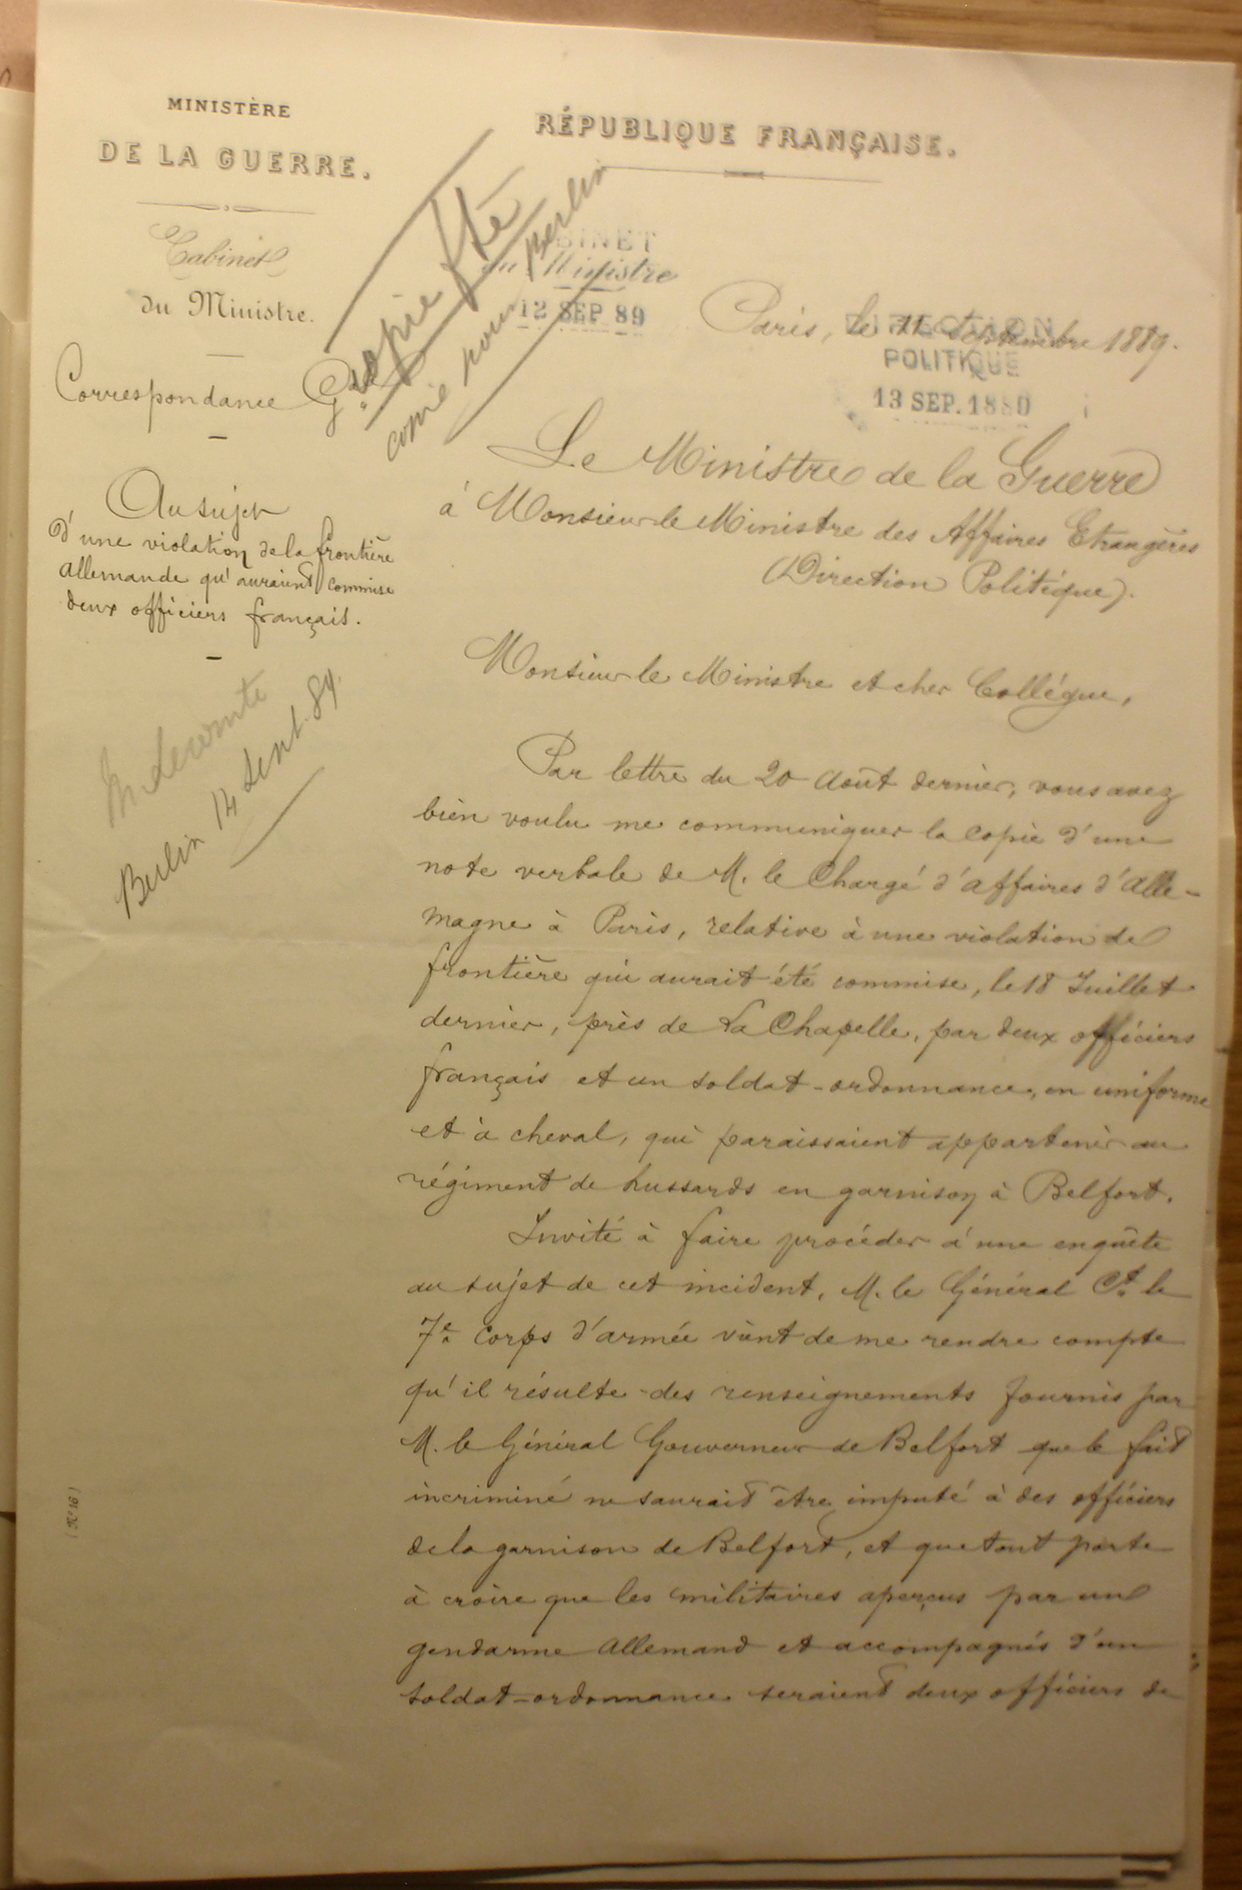 MINISTÈRE
DE LA GUERRE.
Cabinet
du Ministre.
Correspondance Gale
Au sujet
d'une violation de la frontière
allemande qu'auraient commise
deux officiers français.
M. Lecomte
Berlin 14 sept. 89.
RÉPUBLIQUE FRANÇAISE.
Copie fte
copie pour Berlin
CABINET
du Ministre
12 SEP 89
Paris, le 11 Septembre 1889.
DIRECTION
POLITIQUE
13 SEP. 1880
Le Ministre de la Guerre
à Monsieur le Ministre des Affaires Etrangères
(Direction Politique).
Monsieur le Ministre et cher Collègue,
Par lettre du 20 Août dernier, vous avez
bien voulu me communiquer la copie d'une
note verbale de M. le Chargé d'affaires d'Alle-
magne à Paris, relative à une violation de
frontière qui aurait été commise, le 18 Juillet
dernier, près de La Chapelle, par deux officiers
français et un soldat-ordonnance, en uniforme
et à cheval, qui paraissaient appartenir au
régiment de hussards en garnison à Belfort.
Invité à faire procéder à une enquête
au sujet de cet incident, M. le Général Ct. le
7e. Corps d'armée vient de me rendre compte
qu'il résulte des renseignements fournis par
M. le Général Gouverneur de Belfort que le fait
incriminé ne saurait être imputé à des officiers
de la garnison de Belfort, et que tout porte
à croire que les militaires aperçus par un
gendarme Allemand et accompagnés d'un
soldat-ordonnance seraient deux officiers de
(No 16)